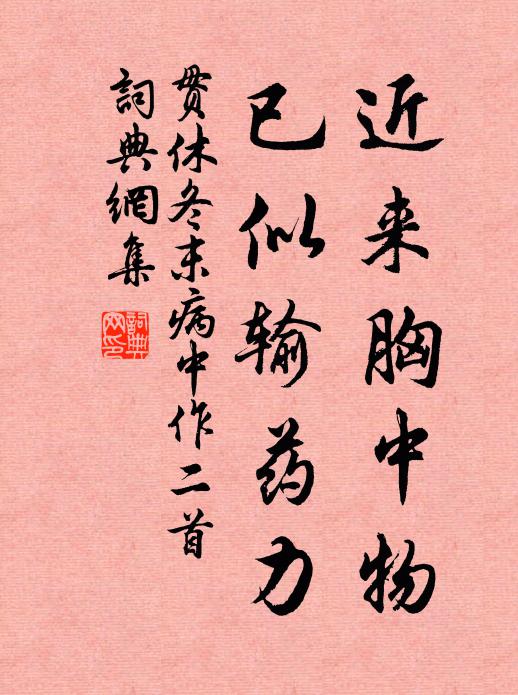 近来胸中物
已似输药力
贯休冬末病中作二首
詞典網集
詞典網印